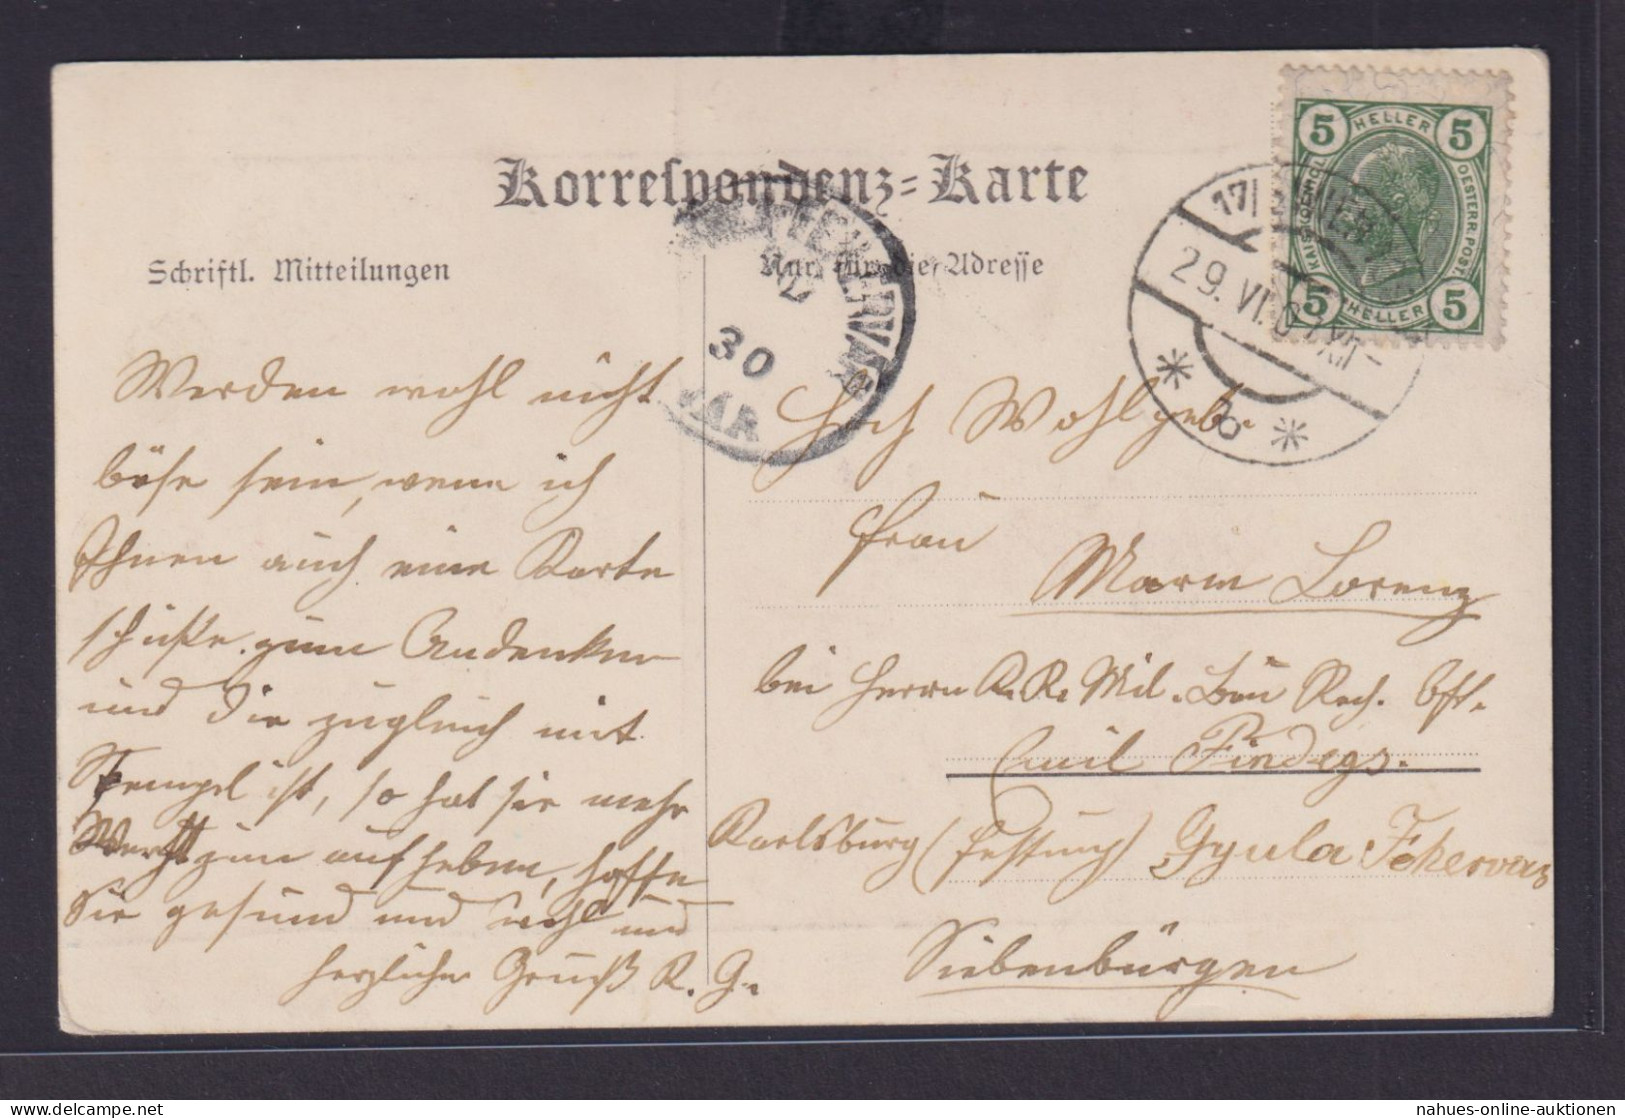 Korrespondenz-Karte
Schriftl. Mitteilungen
Nur für die Adresse
5 HELLER 5
KAIS. KOENIGL. OESTERR. POST.
5 HELLER 5
17/1 WIEN
29. VI. 0 XII-
* b *
FEHÉRVÁR
30
Werden wohl nicht
böse sein, wenn ich
Ihnen auch eine Karte
schicke zum Andenken
und die zugleich mit
Stempel ist, so hat sie mehr
Werth zum aufheben, hoffe
Sie gesund und wohl und
herzlicher Gruß R. G.
Hoch Wohlgeb.
Frau
Marie Lorenz
bei Herrn K. K. Mil. Bau Rech. Off.
Emil
Karlsburg (Festung) Gyula Fehervar
Siebenbürgen
nahues-online-auktionen